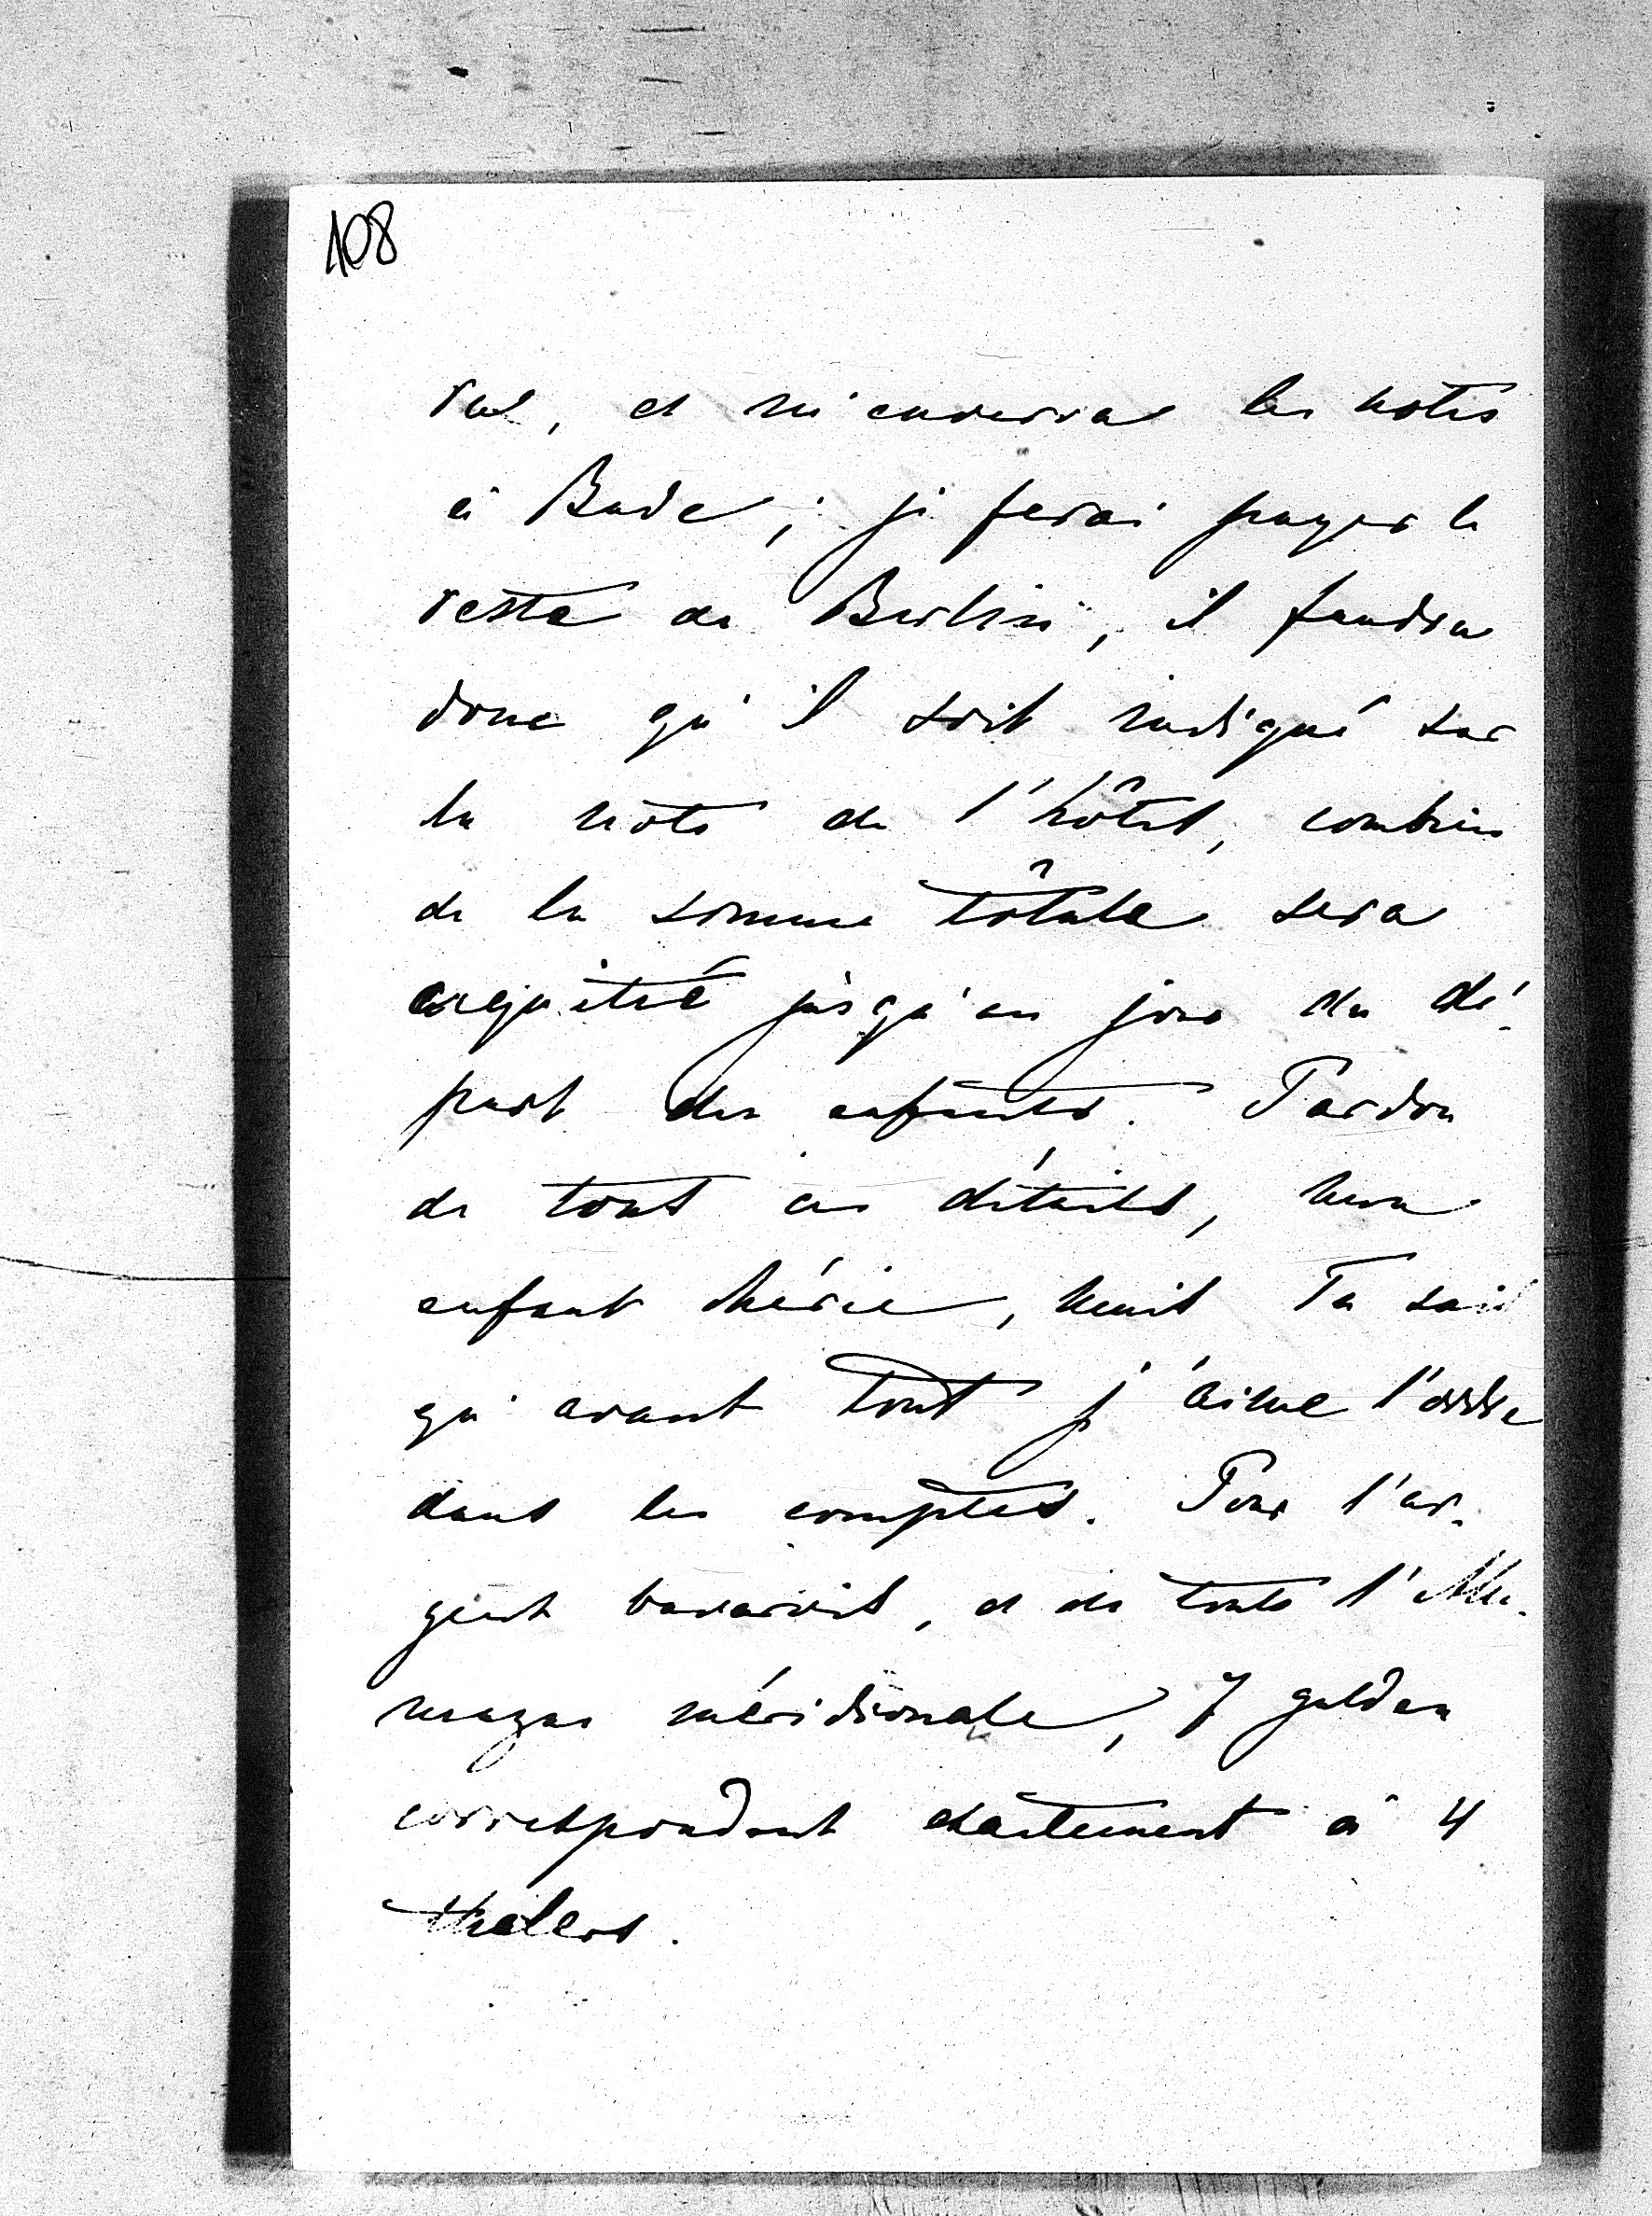 108
ras, et m'enverras les notes
à Bade; je ferai payer le
reste de Berlin, il faudra
donc qu'il soit indiqué sur
la note de l'hôtel, combien
de la somme tôtale sera
acquitté jusqu'au jour du dé-
part des enfants. Pardon
de tous ces détails, mon
enfant chérie, mais Tu sais
qu'avant tout j'aime l'ordre
dans les comptes. Pour l'ar-
gent bavarois, et de toute l'Alle-
magne méridionale, 7 gulden
correspondent exactement à 4
thalers.